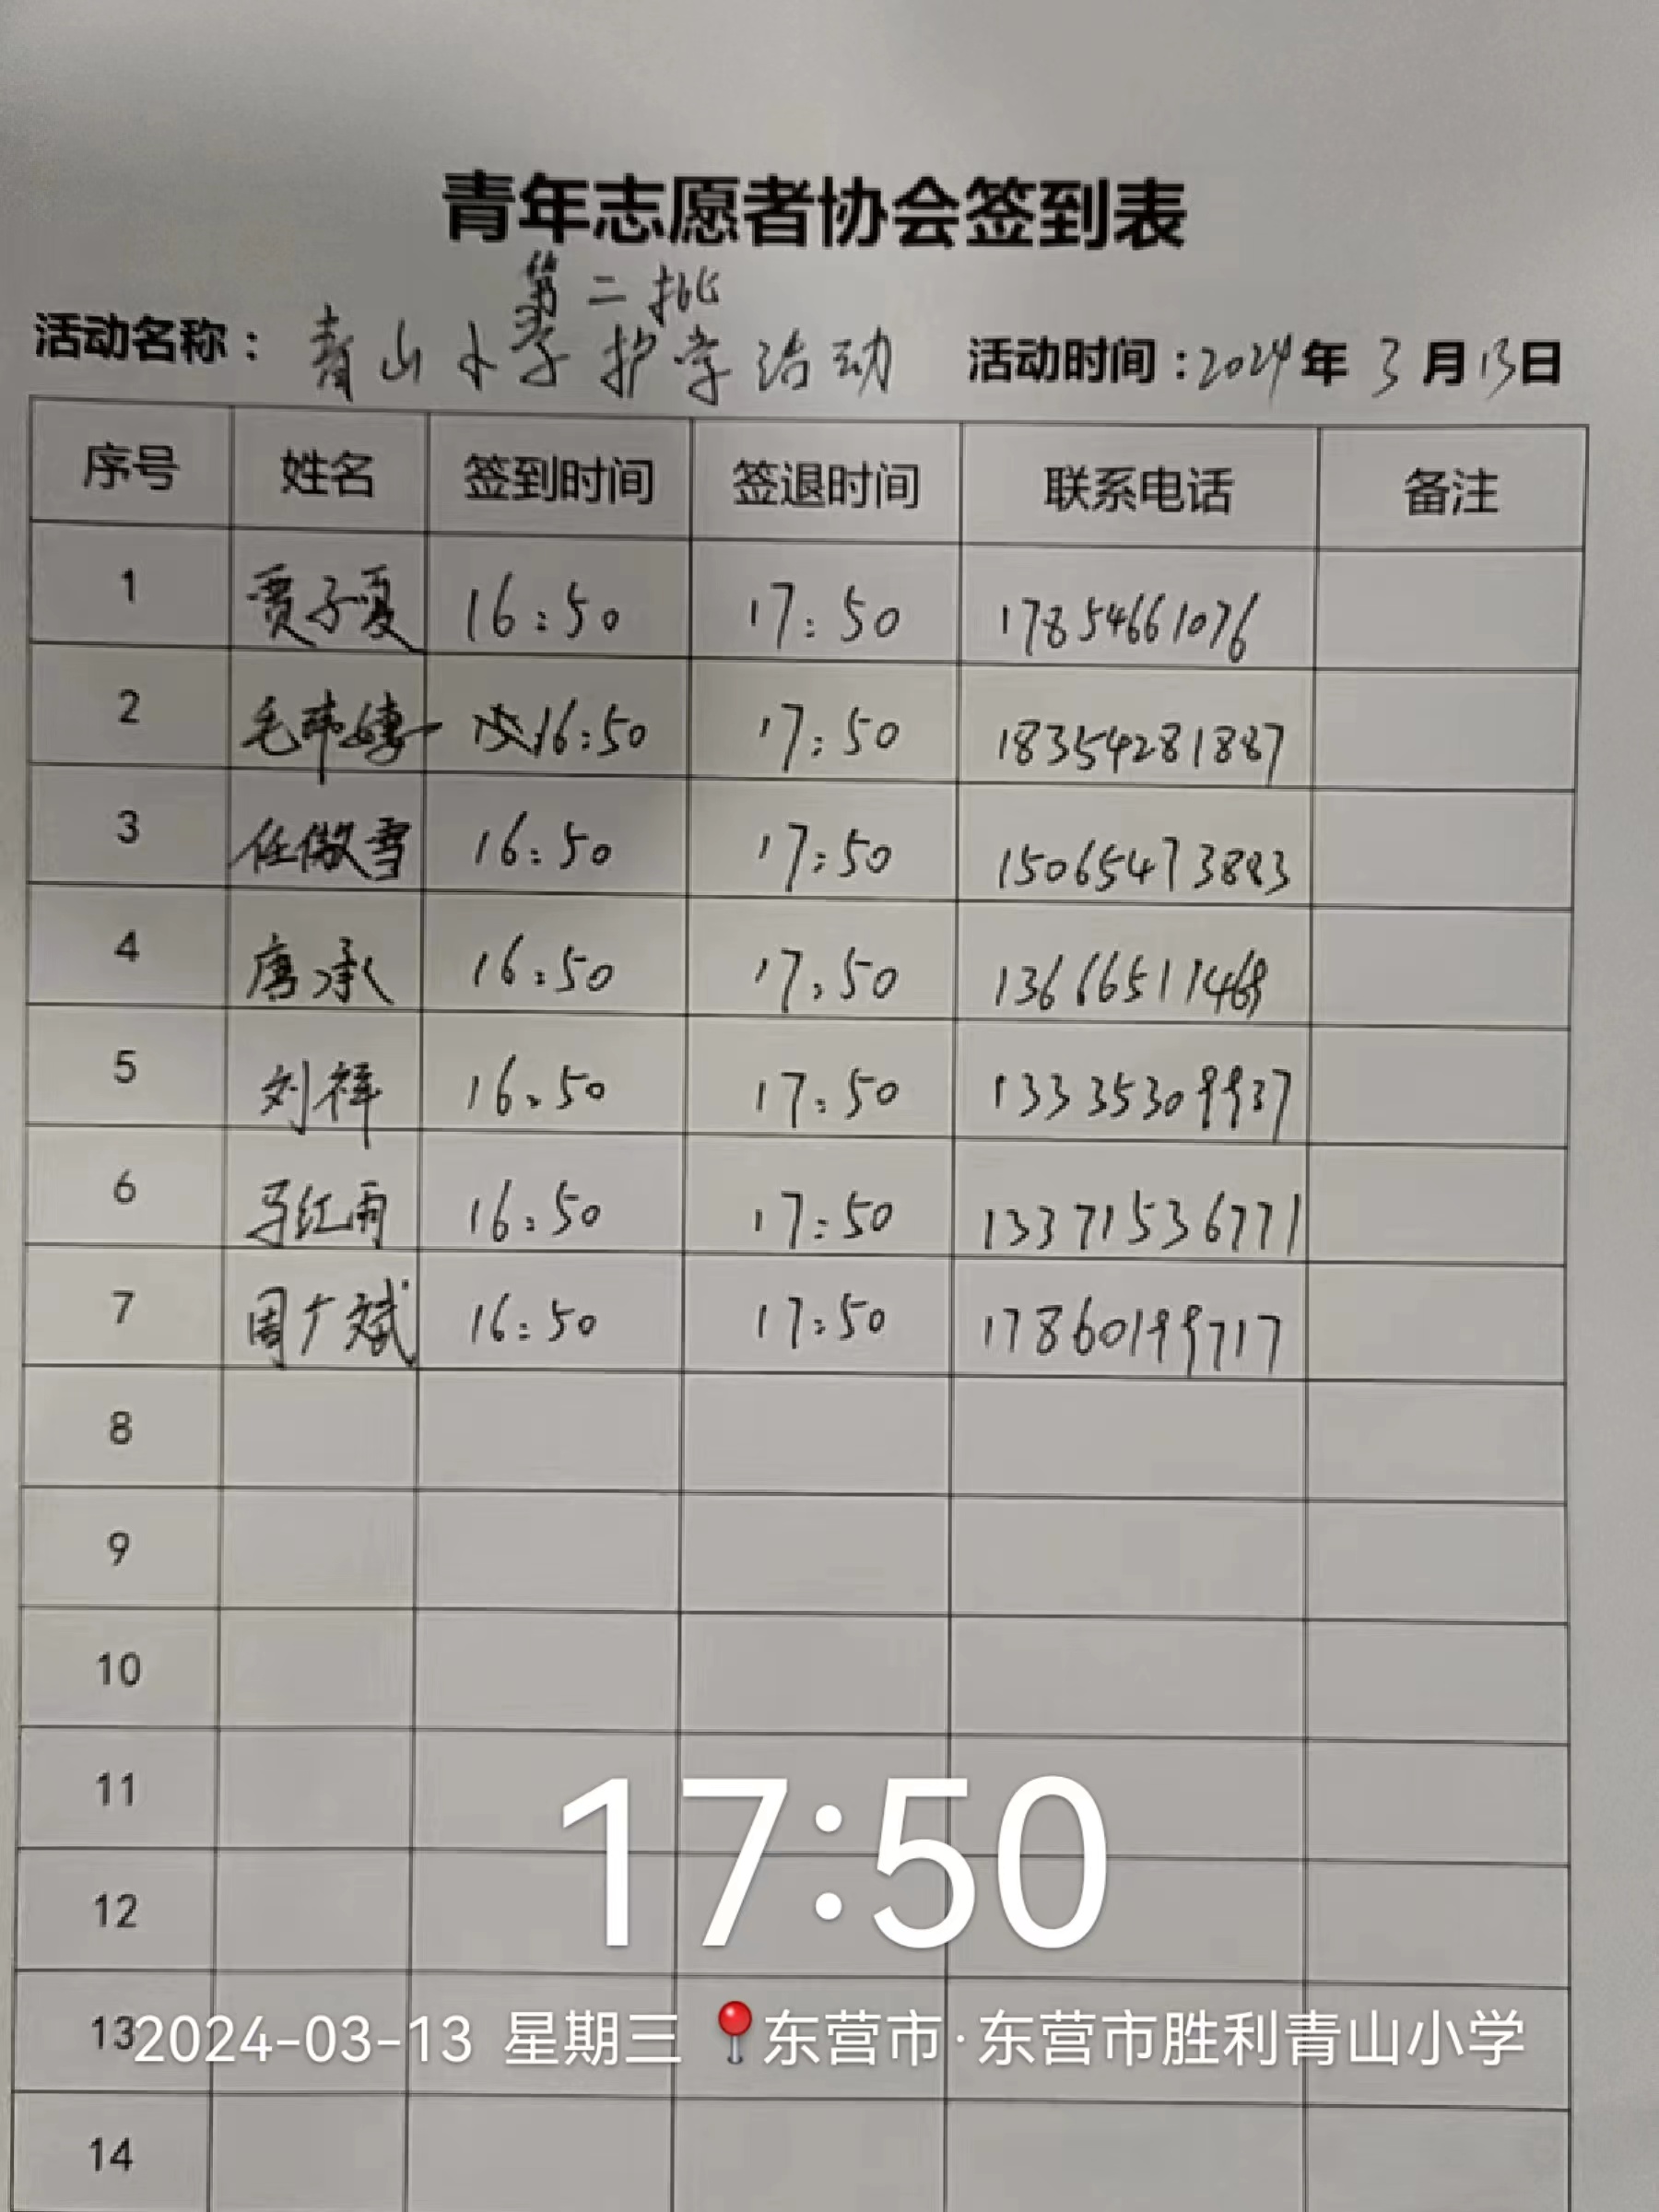 青年志愿者协会签到表
第二批
活动名称：青山小学护学活动 活动时间：2024年3月13日
序号 姓名 签到时间 签退时间 联系电话 备注
1 贾子夏 16:50 17:50 17854661076
2 毛 16:50 17:50 18354281887
3 任傲雪 16:50 17:50 15065473883
4 唐承 16:50 17:50 13666511469
5 刘祥 16:50 17:50 13335309937
6 马红雨 16:50 17:50 13371536771
7 周广斌 16:50 17:50 17860199717
8
9
10
11
17:50
12
13
2024-03-13 星期三 东营市·东营市胜利青山小学
14